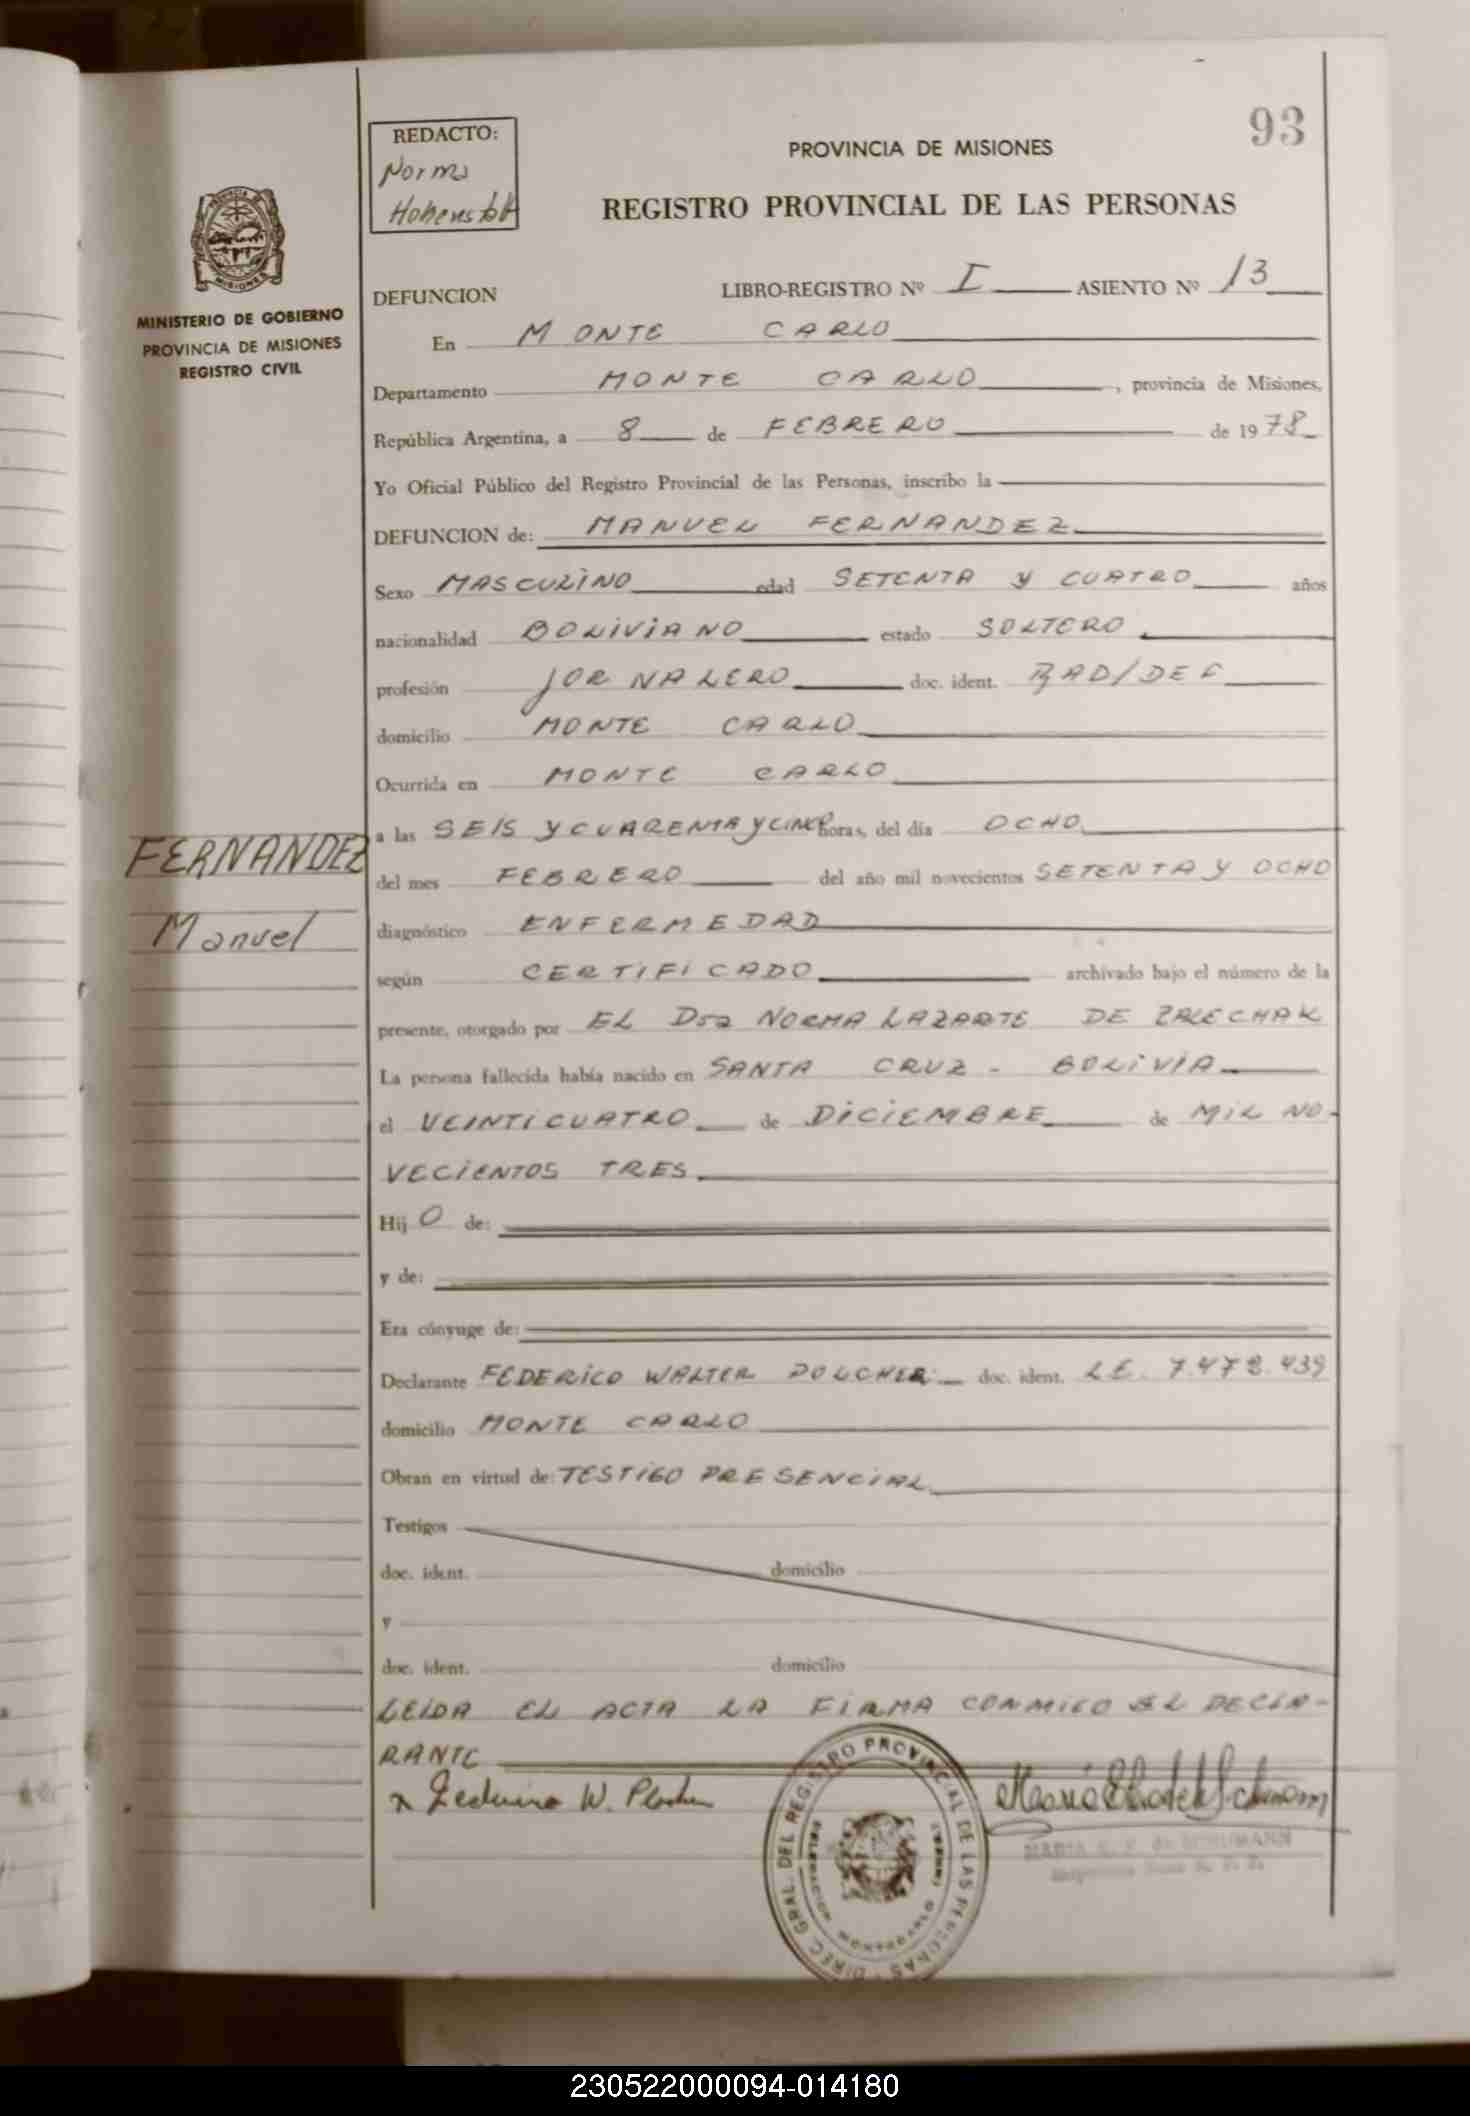 93
REDACTO:
Norma
PROVINCIA DE MISIONES
REGISTRO PROVINCIAL DE LAS PERSONAS
MINISTERIO DE GOBIERNO
PROVINCIA DE MISIONES
REGISTRO CIVIL
DEFUNCION LIBRO-REGISTRO Nº I ASIENTO Nº 13
En MONTE CARLO
Departamento MONTE CARLO, provincia de Misiones,
República Argentina, a 8 de FEBRERO de 1978
Yo Oficial Público del Registro Provincial de las Personas, inscribo la
DEFUNCION de: MANUEL FERNANDEZ
Sexo MASCULINO edad SETENTA Y CUATRO años
nacionalidad BOLIVIANO estado SOLTERO
profesión JORNALERO doc. ident.
domicilio MONTE CARLO
Ocurrida en MONTE CARLO
a las SEIS Y CUARENTA Y CINCO horas, del día OCHO
FERNANDEZ
del mes FEBRERO del año mil novecientos SETENTA Y OCHO
Manuel
diagnóstico ENFERMEDAD
según CERTIFICADO archivado bajo el número de la
presente, otorgado por EL Dra NORMA LAZARTE DE
La persona fallecida había nacido en SANTA CRUZ - BOLIVIA
el VEINTICUATRO de DICIEMBRE de MIL NO-
VECIENTOS TRES
Hij O de:
y de:
Era cónyuge de:
Declarante FEDERICO WALTER doc. ident. L.E. 7.472.439
domicilio MONTE CARLO
Obran en virtud de: TESTIGO PRESENCIAL
Testigos
doc. ident. domicilio
y
doc. ident. domicilio
LEIDA EL ACTA LA FIRMA CONMIGO EL DECLA-
RANTE
DIREC. GRAL. DEL REGISTRO PROVINCIAL DE LAS PERSONAS
DELEGACION MONTECARLO
230522000094-014180